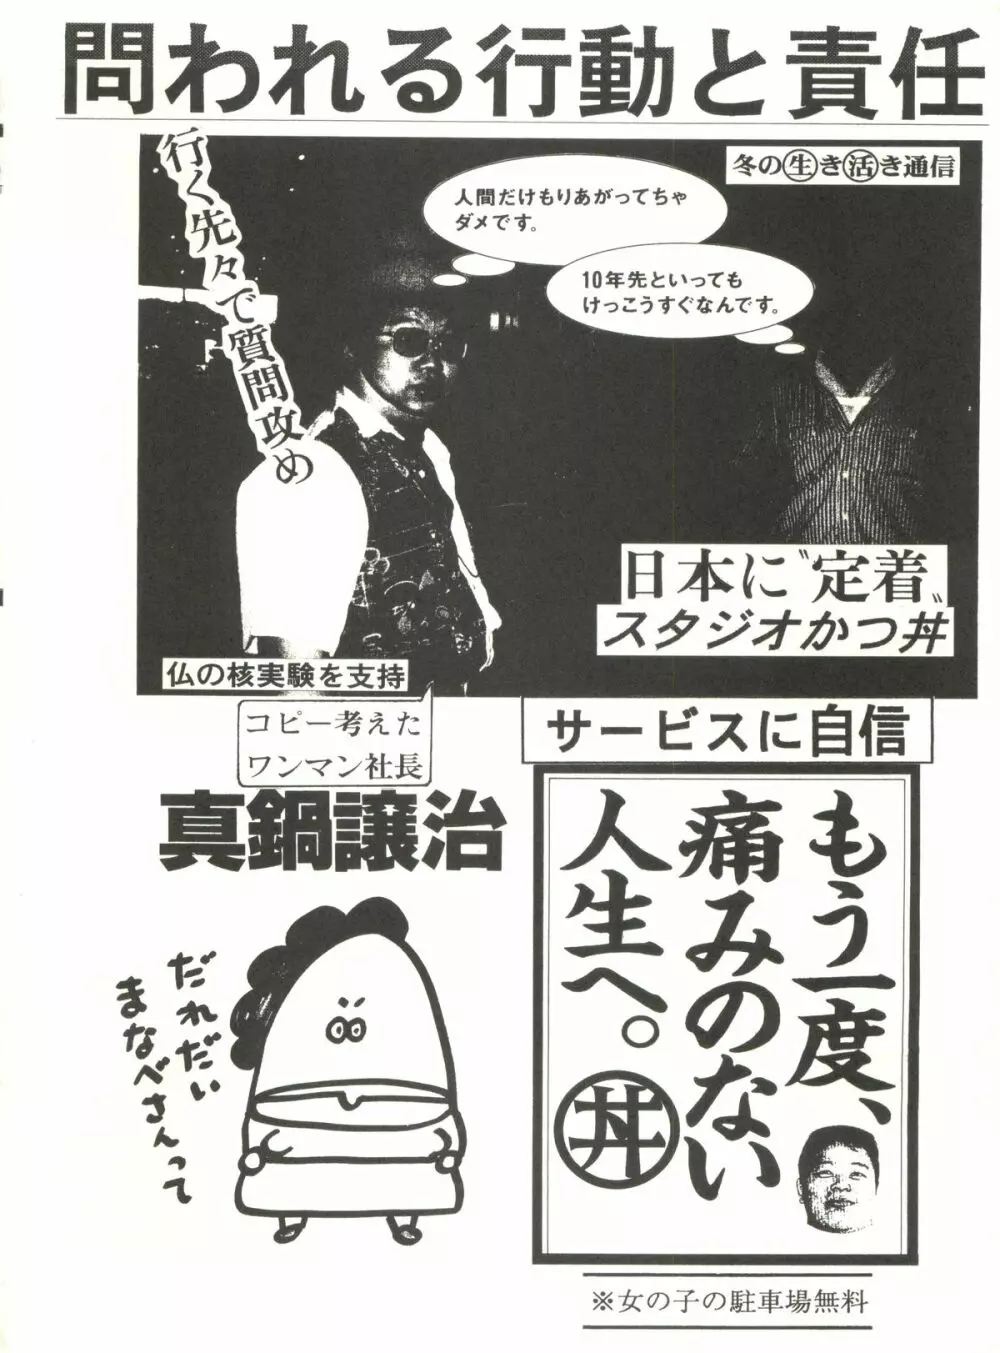 問われる行動と責任
行く先々で質問攻め
冬の生き活き通信
人間だけもりあがってちゃ
ダメです。
10年先といっても
けっこうすぐなんです。
日本に〝定着〟
スタジオかつ丼
仏の核実験を支持
コピー考えた
ワンマン社長
真鍋譲治
サービスに自信
もう一度、
痛みのない
人生へ。
丼
だれだい
まなべさんって
※女の子の駐車場無料